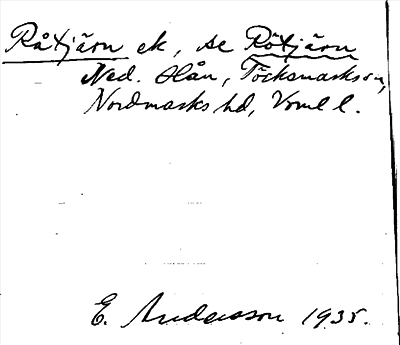 Råtjärn ek, se Rötjärn
Ned. Hån, Töcksmarks sn,
Nordmarks hd, Vrml l.
E. Andersson 1935.